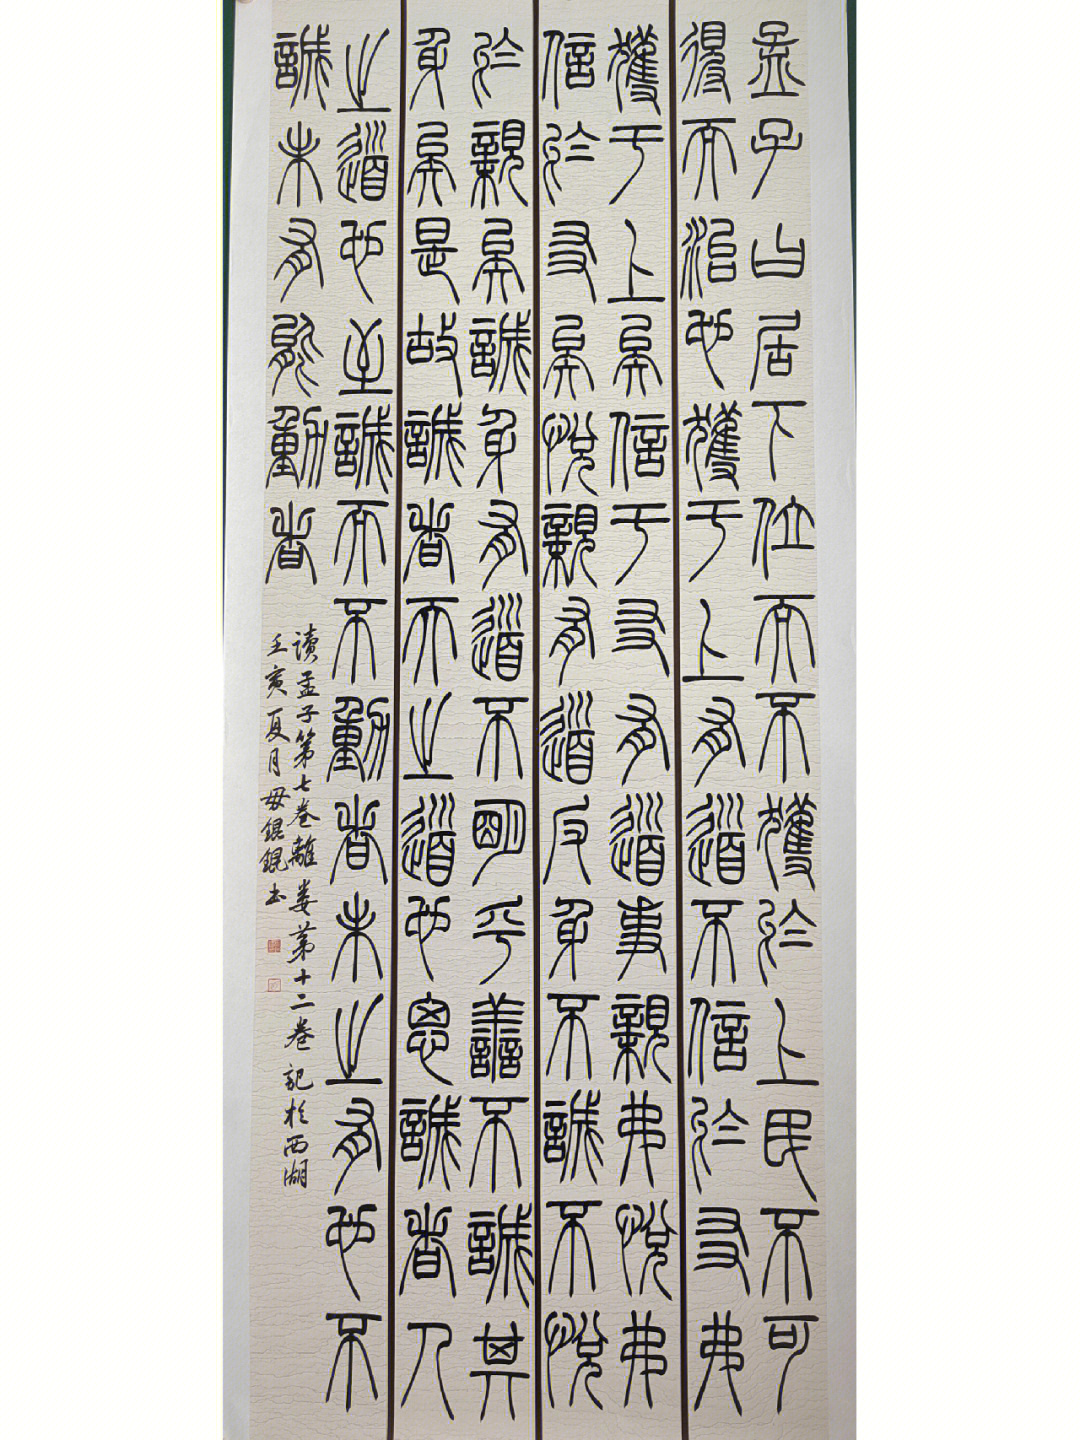 孟子曰居下位而不獲於上民不可
得而治也獲于上有道不信於友弗
獲于上矣信于友有道事親弗悅弗
信於友矣悅親有道反身不誠不悅
於親矣誠身有道不明乎善不誠其
身矣是故誠者天之道也思誠者人
之道也至誠而不動者未之有也不
誠未有能動者
讀孟子第七卷離娄第十二卷記於西湖
壬寅夏月毋錕錕书